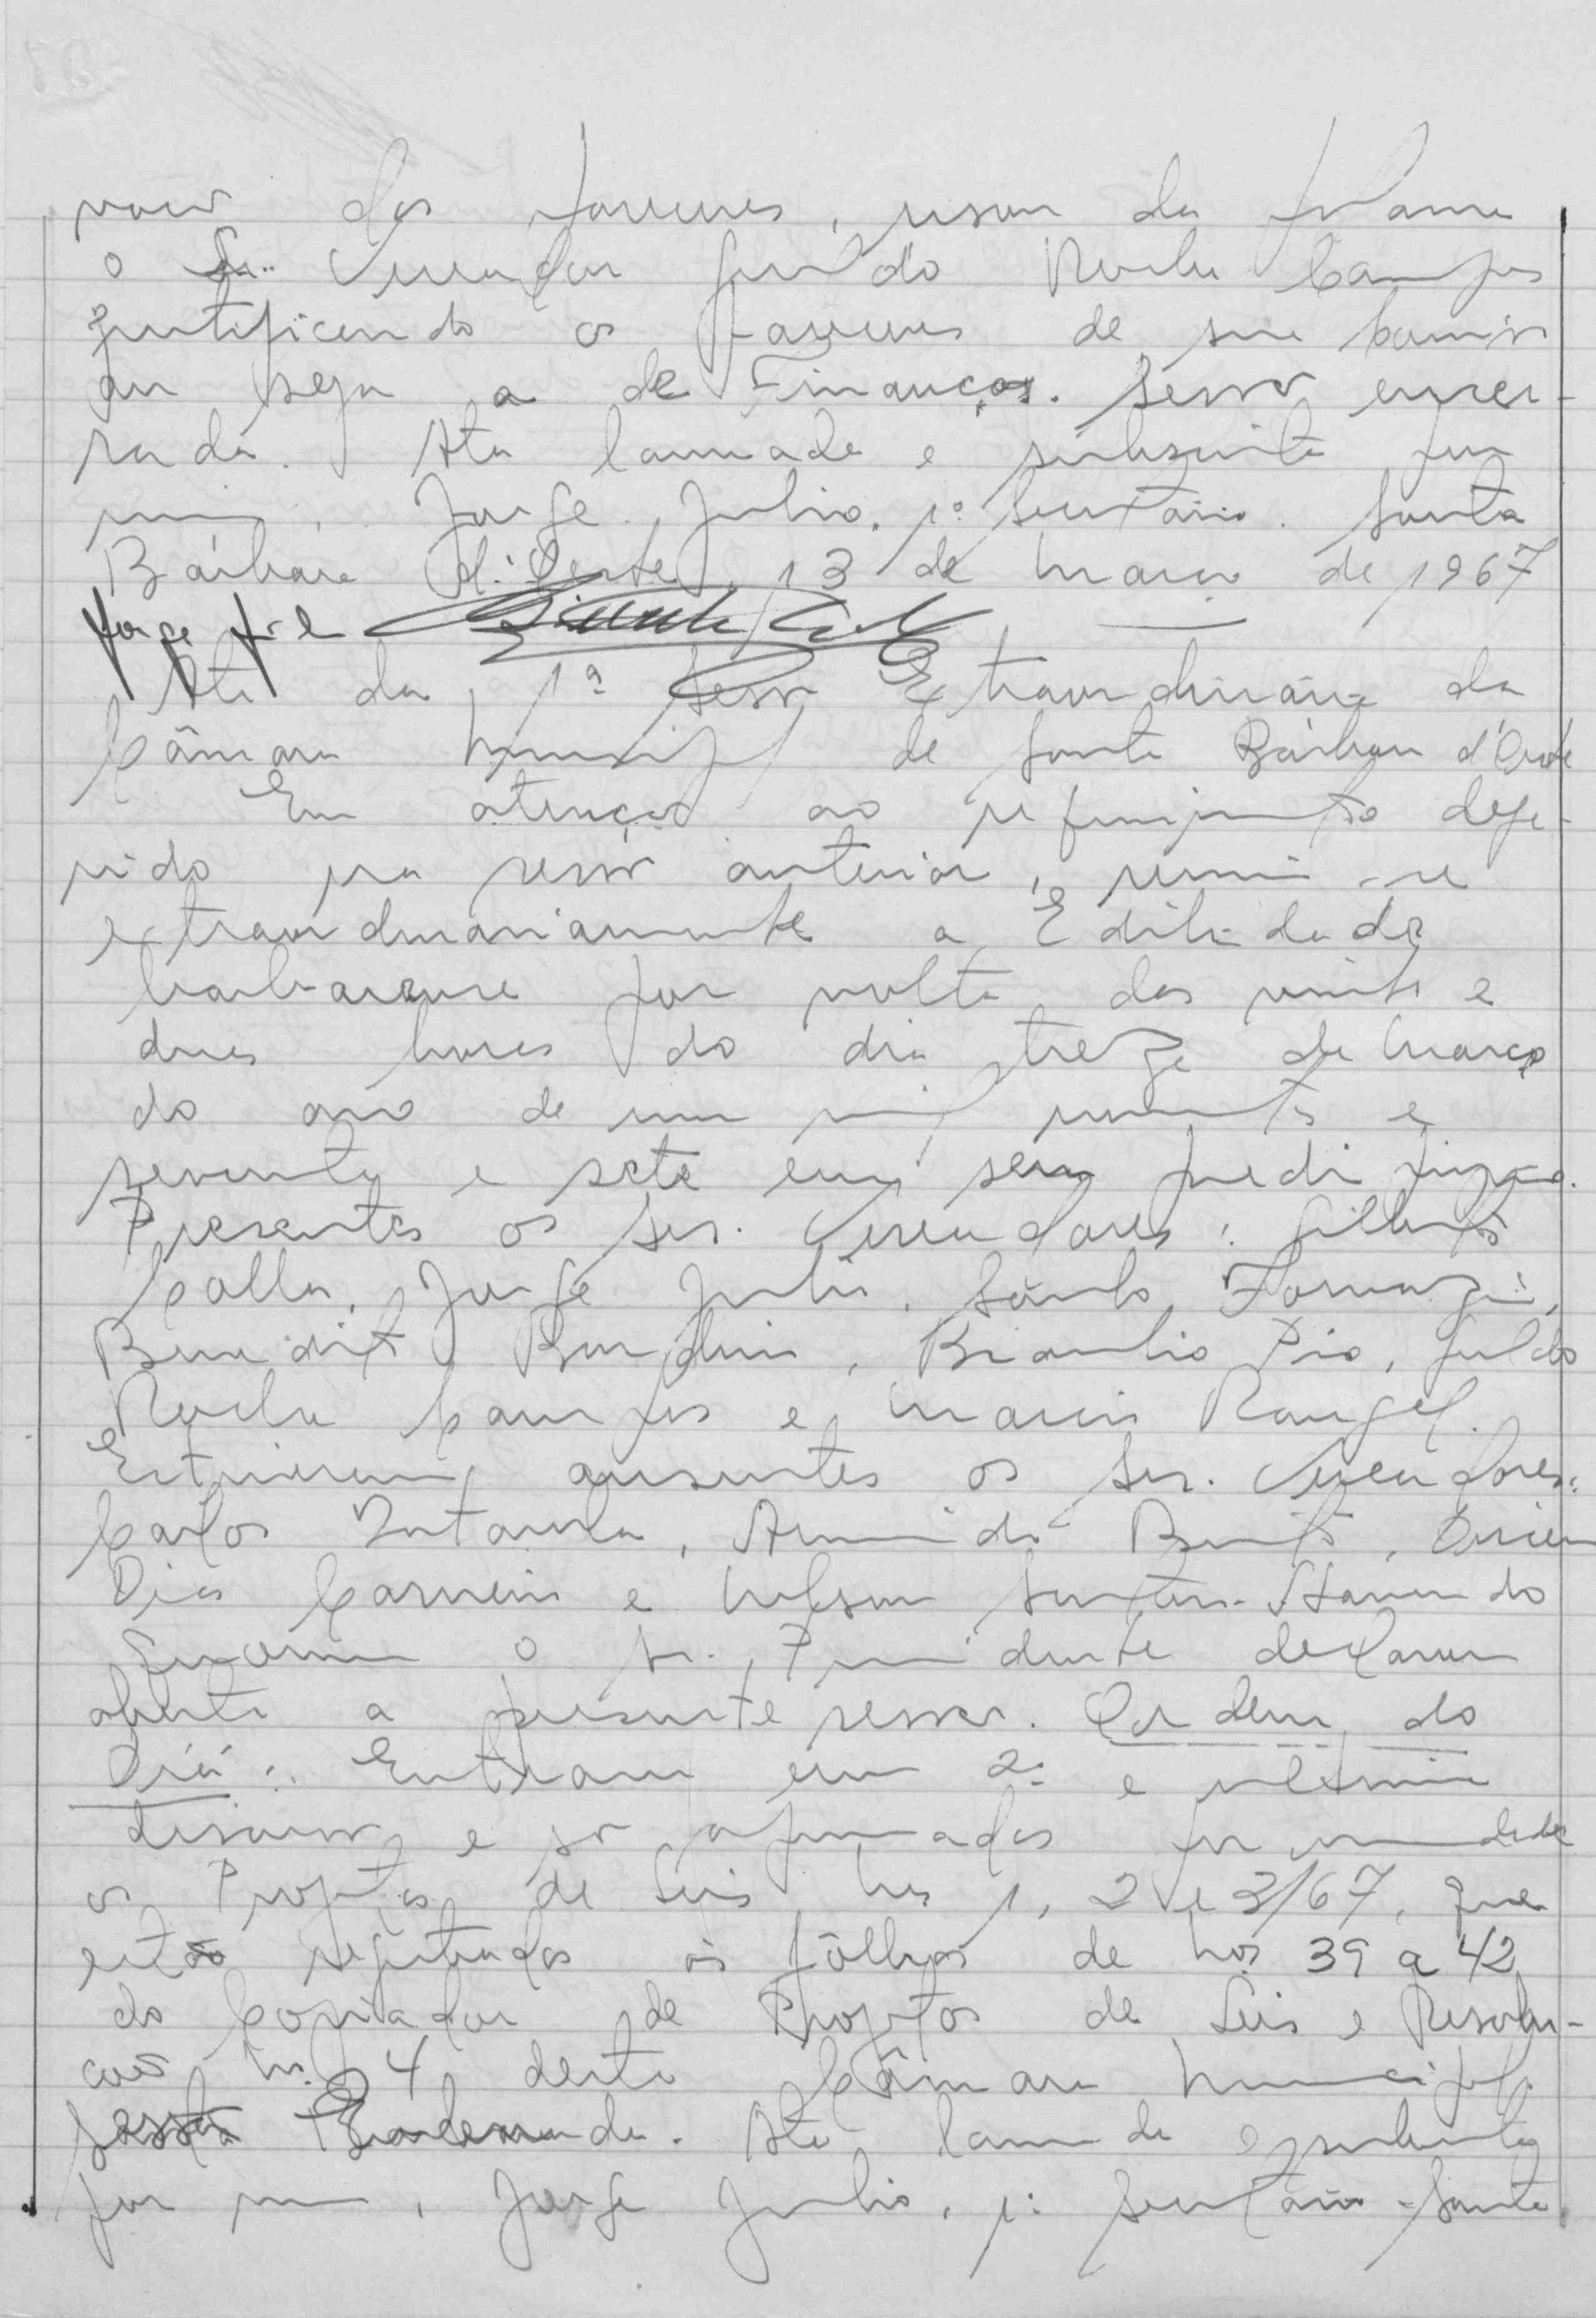 dos pareceres, usou da palavra
o Sr. Vereador Geraldo Rocha Campos
justificando os pareceres de sua Comis
ou seja a de Finanças. Sessão encer-
rada. Ata lavrada e subscrita por
mim, Jorge Julio, 1º Secretário. Santa
Bárbara d'Oeste, 13 de Março de 1967
Jorge Julio
Ata da 1ª Sessão Extraordinária da
Câmara Municipal de Santa Bárbara d'Oeste
Em atenção ao requerimento defe-
rido na sessão anterior, reuniu-se
extraordinariamente a Edilidade
barbarense por volta das vinte e
duas horas do dia treze de Março
do ano de um mil novecentos e
sessenta e sete em seu prédio próprio.
Presentes os Srs. Vereadores: Gilberto
Calla, Jorge Julio, Sáulo Fornazin,
Benedito Bardini, Bráulio Pio, Geraldo
Rocha Campos e Marcio Rangel.
Estiveram ausentes os Srs. Vereadores:
Carlos, Benito,
Dias Carneiro e Nelson. Havendo
o Sr. Presidente declarou
aberta a presente sessão. Ordem do
Dia: Entraram em 2ª e última
discussão e são aprovados por unanimidade
os Projetos de Leis Nos 1, 2 e 3/67, que
estão registrados às fôlhas de Nos 39 a 42
do Copiador de Projetos de Leis e Resolu-
ções Nº 4 desta Câmara Municipal.
Ata lavrada e subscrita
por mim, Jorge Julio, 1º Secretário. Santa